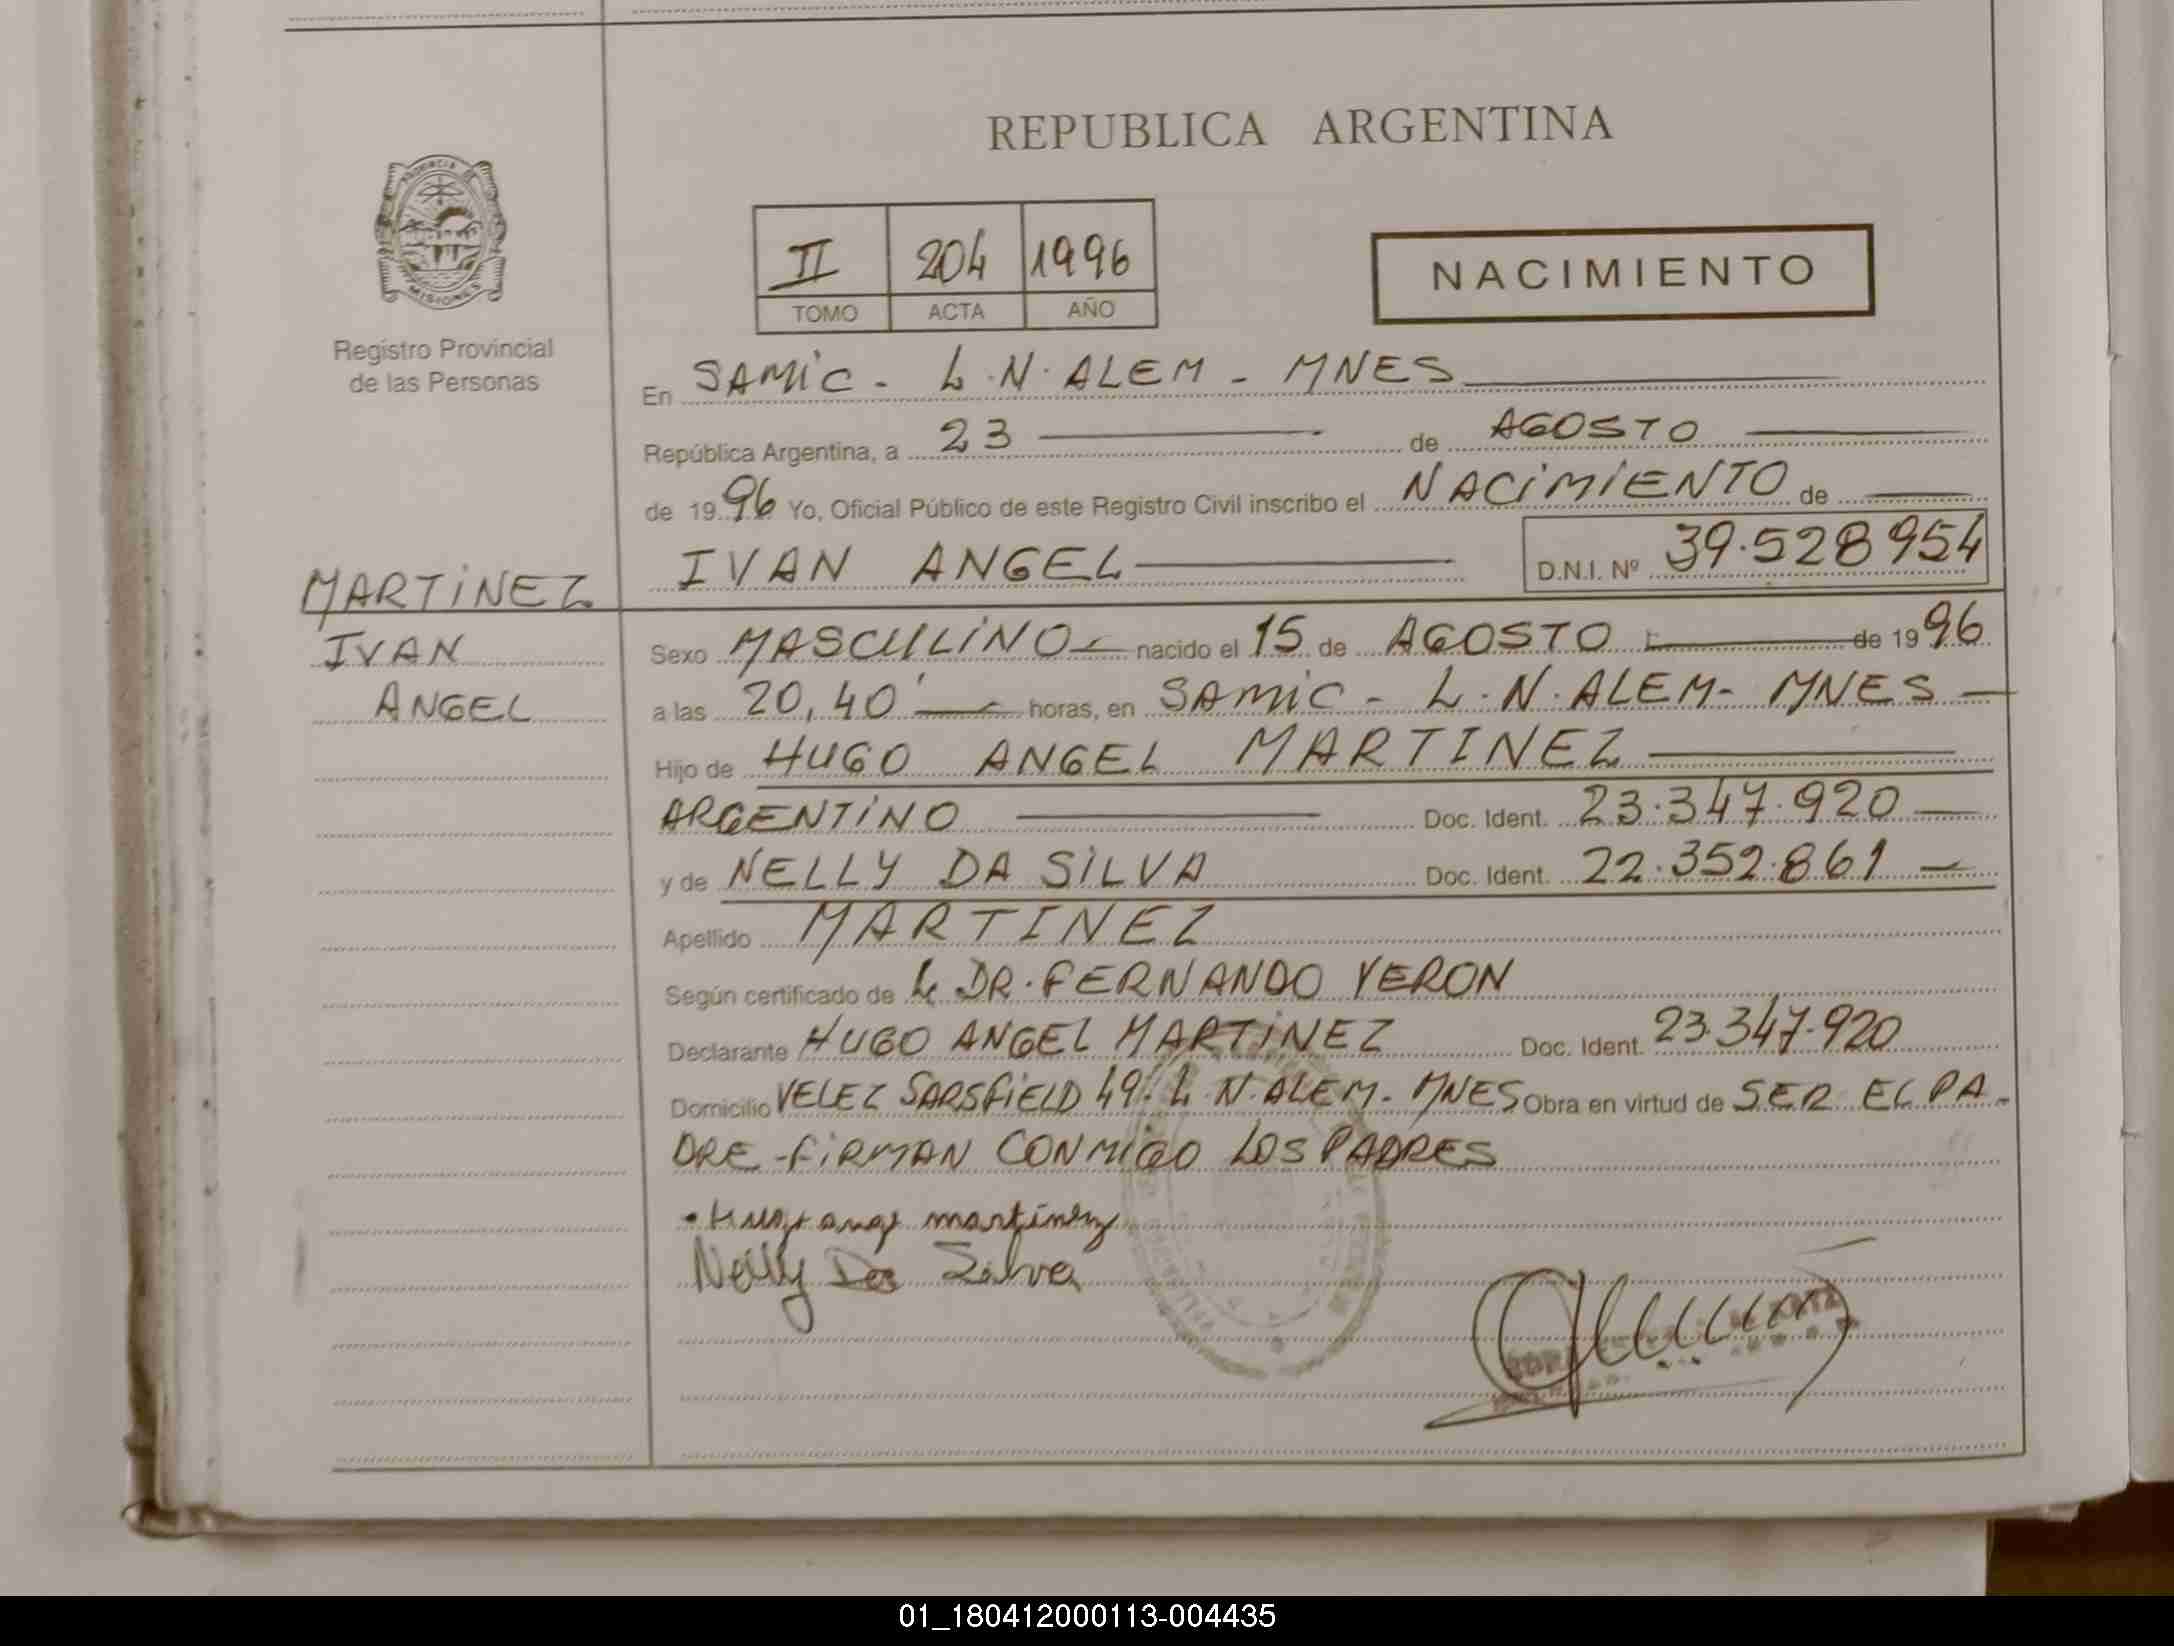 REPUBLICA ARGENTINA
PROVINCIA DE
MISIONES
Registro Provincial
de las Personas
II 204 1996
TOMO ACTA AÑO
NACIMIENTO
En SAMIC - L.N. ALEM - MNES
República Argentina, a 23 de AGOSTO
de 1996 Yo, Oficial Público de este Registro Civil inscribo el NACIMIENTO de
IVAN ANGEL D.N.I. Nº 39.528954
MARTINEZ
IVAN
ANGEL
Sexo MASCULINO nacido el 15 de AGOSTO de 1996
a las 20,40' horas, en SAMIC - L.N. ALEM - MNES
Hijo de HUGO ANGEL MARTINEZ
ARGENTINO Doc. Ident. 23.347.920
y de NELLY DA SILVA Doc. Ident. 22.352.861
Apellido MARTINEZ
Según certificado de L DR. FERNANDO VERON
Declarante HUGO ANGEL MARTINEZ Doc. Ident. 23.347.920
Domicilio VELEZ SARSFIELD 49. L.N. ALEM. MNES Obra en virtud de SER EL PA-
DRE - FIRMAN CONMIGO LOS PADRES
martinez
Nelly Da Silva
01_180412000113-004435